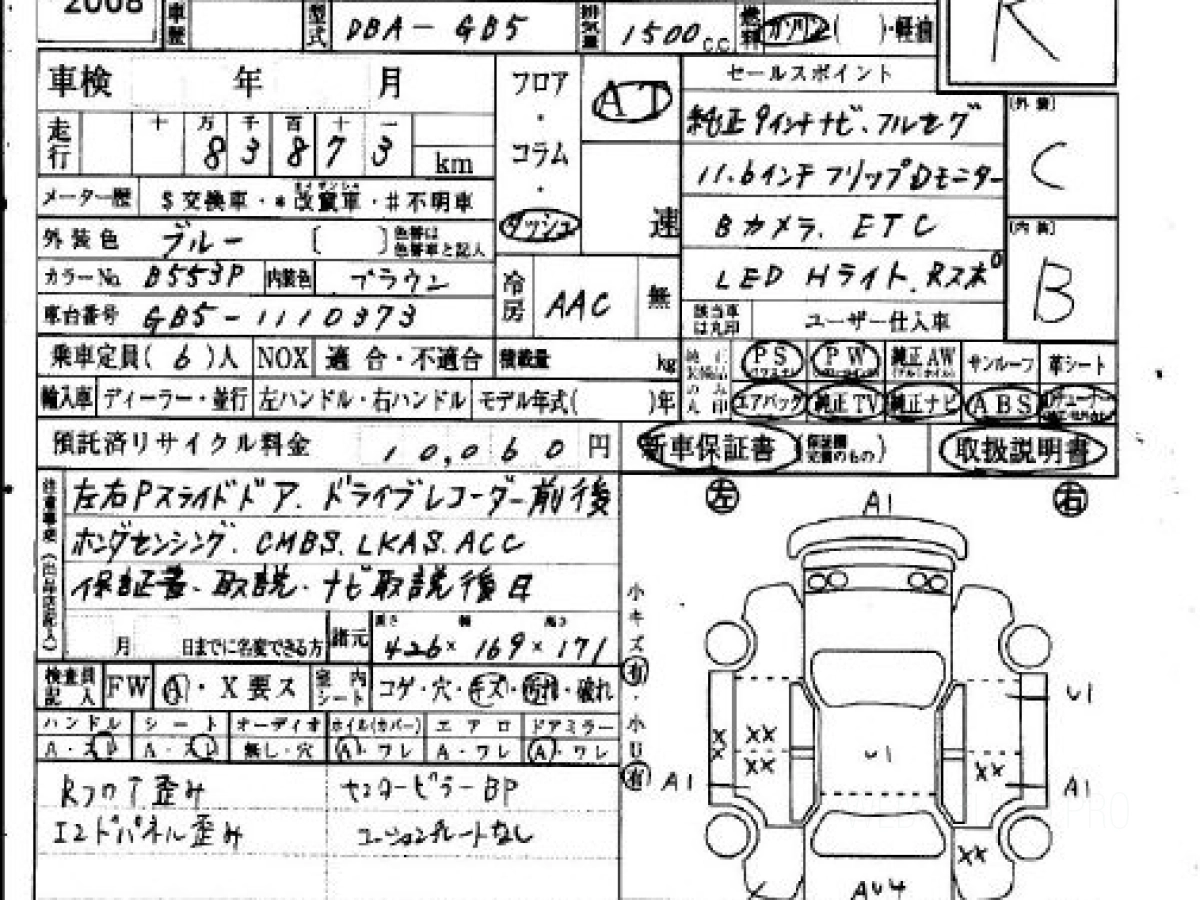 2008 車歴 型式 DBA-GB5 排気量 1500 C.C. 燃料 ガソリン( )・軽油 R
車検 年 月 フロア・コラム・ダッシュ AT 速 セールスポイント
走行 十 万 千 百 十 一
8 3 8 7 3 km
純正9インチナビ、フルセグ
11.6インチフリップDモニター
Bカメラ、ETC
LED Hライト、Rスポ
メーター歴 $交換車・*改竄車・#不明車
外装色 ブルー [ ] 色替は色替車と記入
カラーNo. B553P 内装色 ブラウン
冷房 AAC 無
車台番号 GB5-1110373
該当車は丸印 ユーザー仕入車
[外装]
C
[内装]
B
乗車定員( 6 )人 NOX 適合・不適合 積載量 kg
輸入車 ディーラー・並行 左ハンドル・右ハンドル モデル年式( )年
PS PW 純正AW サンルーフ 革シート
エアバック 純正TV 純正ナビ ABS
預託済リサイクル料金 10,060 円 新車保証書 取扱説明書
左右Pスライドドア、ドライブレコーダー前後
ホンダセンシング、CMBS、LKAS、ACC
保証書、取説、ナビ取説後日
月 日までに名変できる方 諸元 長さ 幅 高さ
426×169×171
検査員記入 FW A・X要ス 室内シート コゲ・穴・キズ・汚れ・破れ
ハンドル シート オーディオ ホイル(カバー) エアロ ドアミラー
A・スレ A・スレ 無し・穴 A・ワレ A・ワレ A・ワレ
Rフロア歪み センターピラーBP
エンドパネル歪み コーションプレートなし
左 右
A1
小キズ有・小U有
U1
XX
XX
XX
U1
XX
A1
A1
XX
AU4